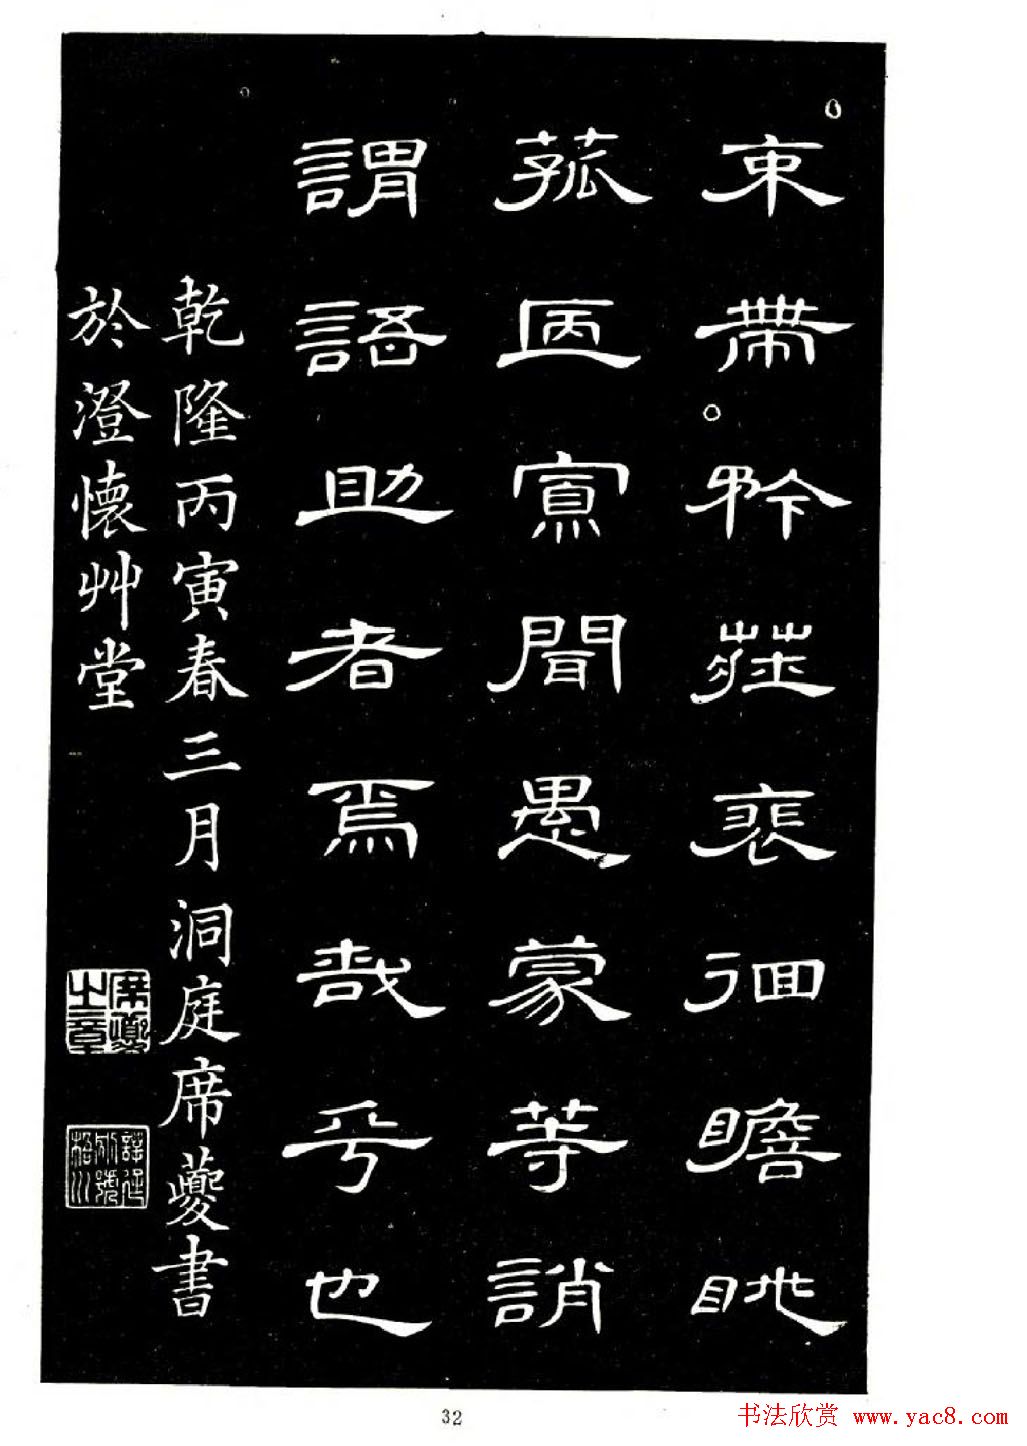 束帶矜莊裴徊瞻眺
菰陋寡聞愚蒙等誚
謂語助者焉哉乎也
乾隆丙寅春三月洞庭席夔書
於澄懷艸堂
席夔之章
32
书法欣赏 www.yac8.com